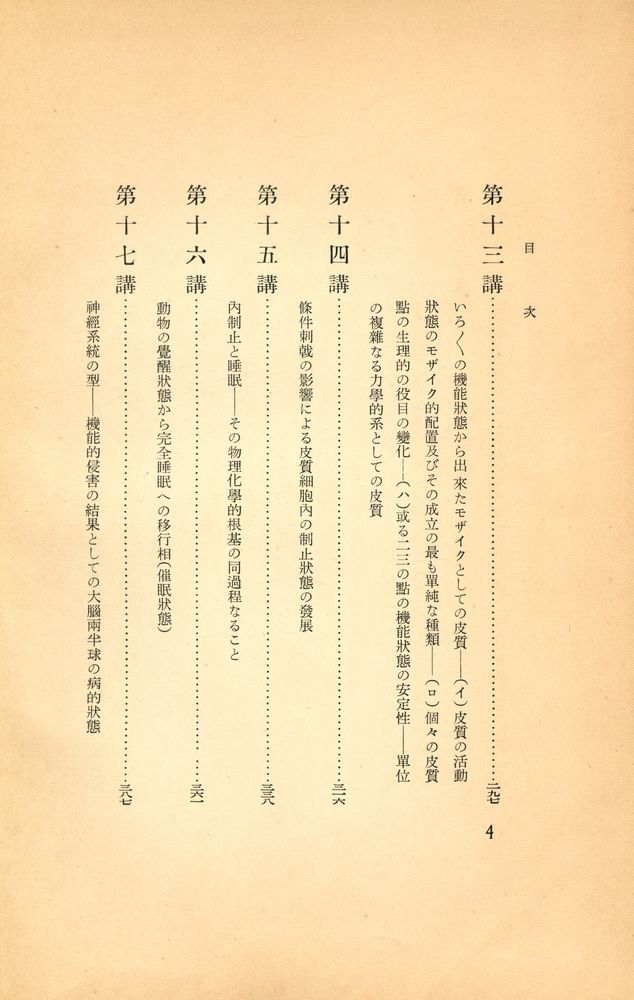 目次
第十三講……二九七
いろ〳〵の機能狀態から出來たモザイクとしての皮質——(イ)皮質の活動
狀態のモザイク的配置及びその成立の最も單純な種類——(ロ)個々の皮質
點の生理的の役目の變化——(ハ)或る二三の點の機能狀態の安定性——單位
の複雜なる力學的系としての皮質
第十四講……三一六
條件刺戟の影響による皮質細胞內の制止狀態の發展
第十五講……三三八
內制止と睡眠——その物理化學的根基の同過程なること
第十六講……三六一
動物の覺醒狀態から完全睡眠への移行相(催眠狀態)
第十七講……三八七
神經系統の型——機能的侵害の結果としての大腦兩半球の病的狀態
4